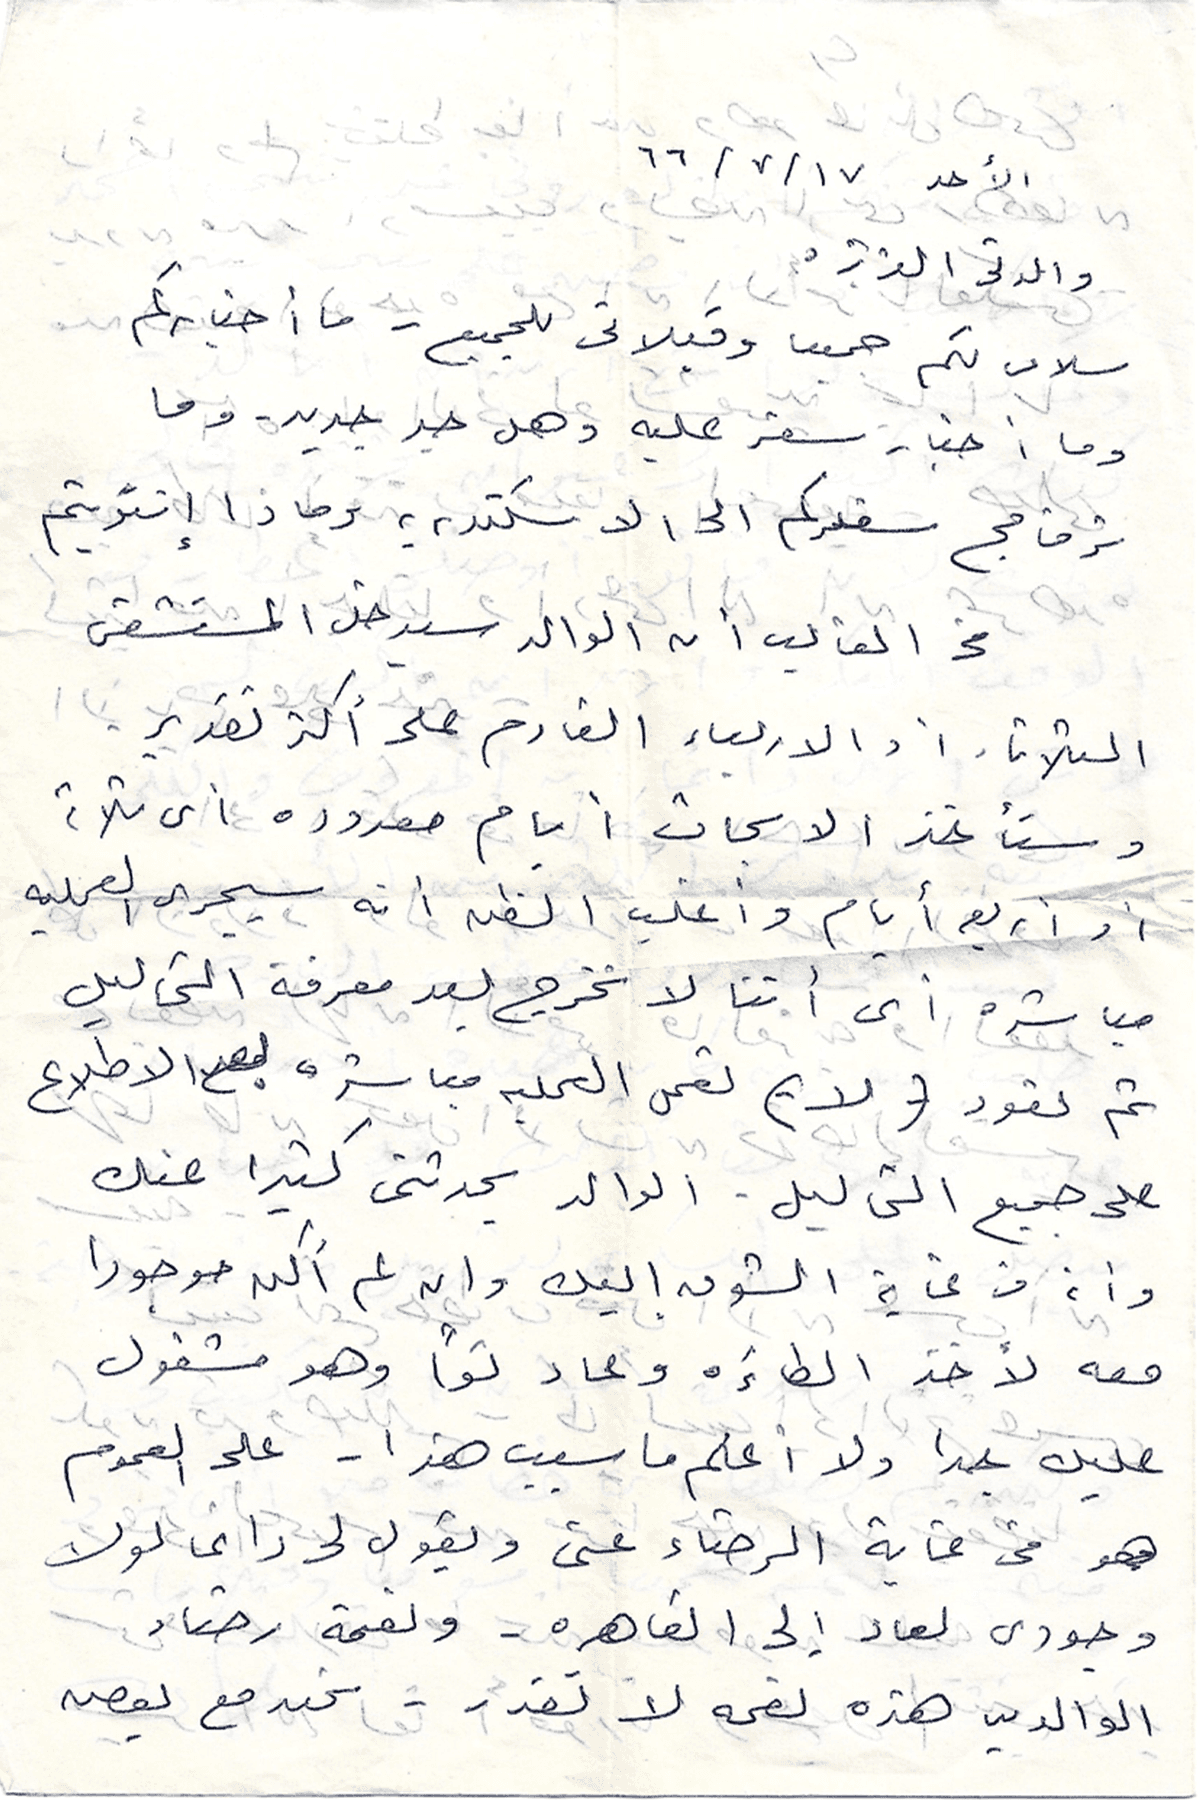 الأحد ١٧/٧/٦٦
والدتى العزيزه
سلامى لكم جميعا وقبلاتى للجميع - ما أخباركم
وما أخبار سفر عليه وهل جد جديد - وما
برنامج سفركم الى الاسكندريه وماذا إنتويتم
فى الغالب أن الوالد سيدخل المستشفى
الثلاثاء أو الاربعاء القادم على أكثر تقدير
وستأخذ الابحاث أيام معدوده أى ثلاثة
أو أربع أيام وأغلب الظن أنه سيجرى العمليه
مباشره أى أننا لا نخرج بعد معرفة التحاليل
ثم نعود لعمل العمليه مباشره بعد الاطلاع
على جميع التحاليل - الوالد يحدثنى كثيرا عنك
وأنه فى غاية الشوق إليك وان لم أكن موجودا
معه لأخذ الطائره وعاد توًا وهو مشغول
عليك جدا ولا أعلم ما سبب هذا - على العموم
هو فى غاية الرضاء عنى ويقول لى دائما لولا
وجودى لعاد إلى القاهره - ونعمة رضاء
الوالدين هذه نعمه لا تقدر - نحن مع بعض